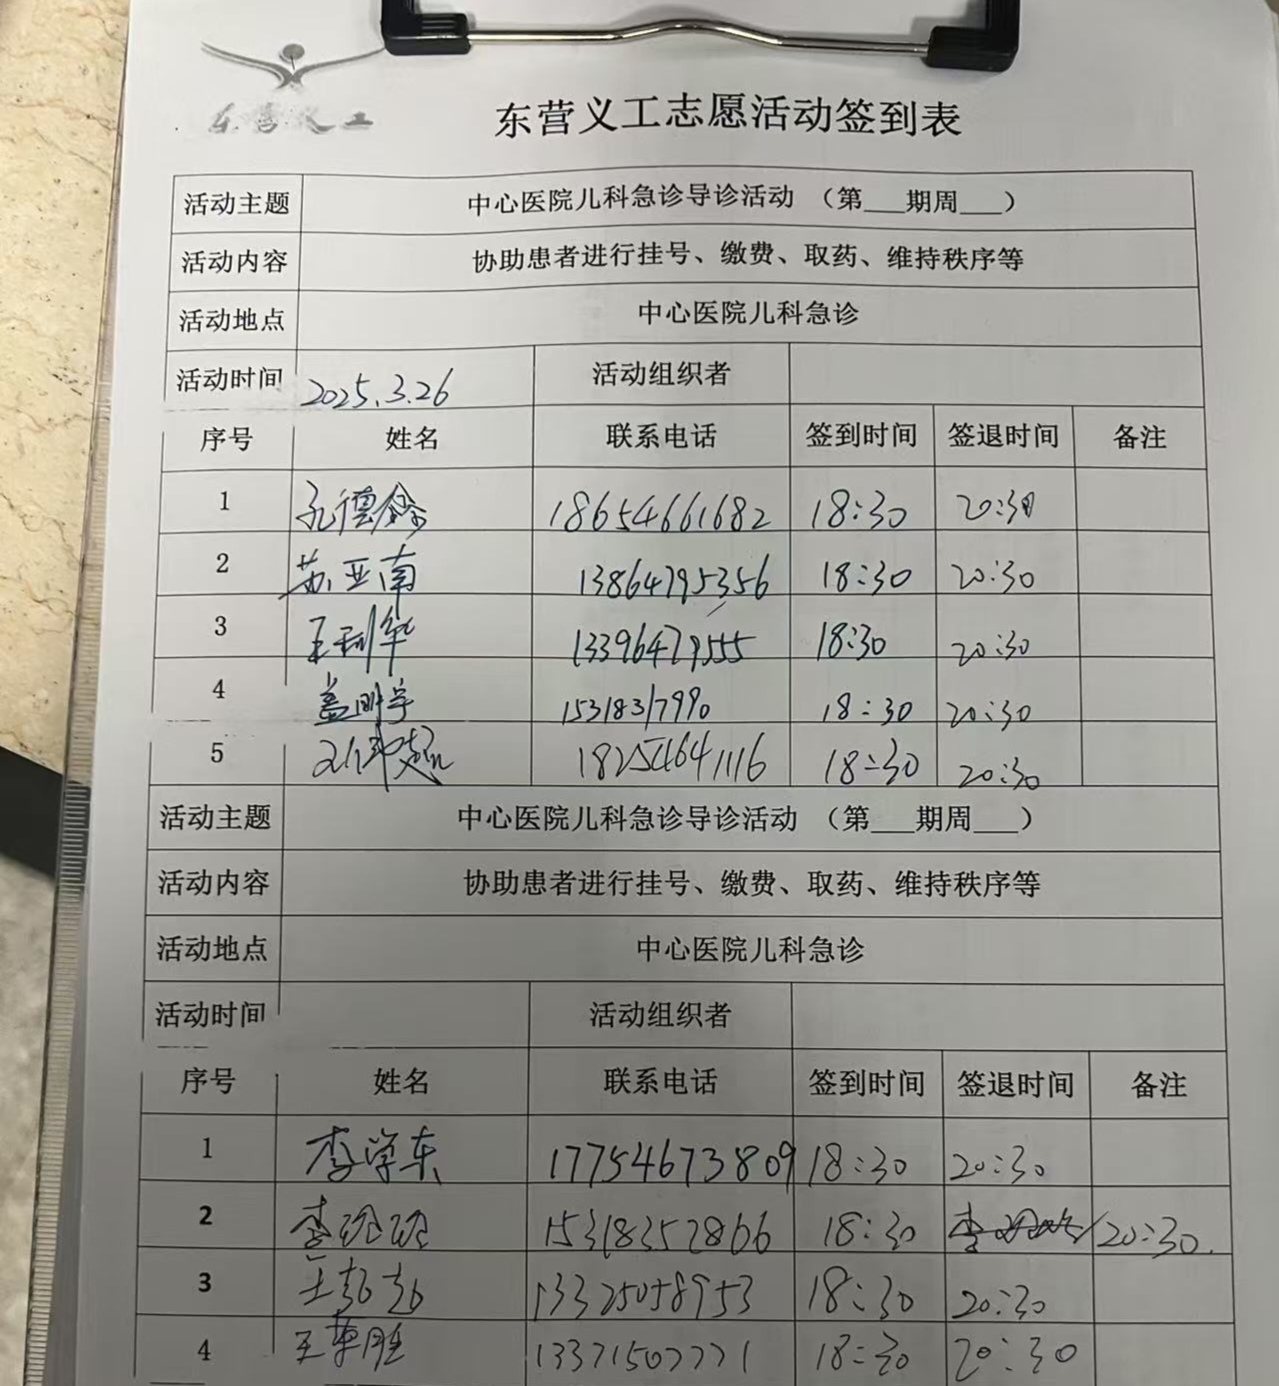 东营义工
东营义工志愿活动签到表
活动主题 中心医院儿科急诊导诊活动 （第___期周___）
活动内容 协助患者进行挂号、缴费、取药、维持秩序等
活动地点 中心医院儿科急诊
活动时间 2025.3.26 活动组织者
序号 姓名 联系电话 签到时间 签退时间 备注
1 孔德 18654661682 18:30 20:30
2 苏亚南 13864795356 18:30 20:30
3 王利华 13396479555 18:30 20:30
4 盖明宇 15318317990 18:30 20:30
5 18254641116 18:30 20:30
活动主题 中心医院儿科急诊导诊活动 （第___期周___）
活动内容 协助患者进行挂号、缴费、取药、维持秩序等
活动地点 中心医院儿科急诊
活动时间 活动组织者
序号 姓名 联系电话 签到时间 签退时间 备注
1 李学东 17754673809 18:30 20:30
2 李 15318352866 18:30 20:30.
3 王 13325058953 18:30 20:30
4 王 胜 13371507771 18:30 20:30